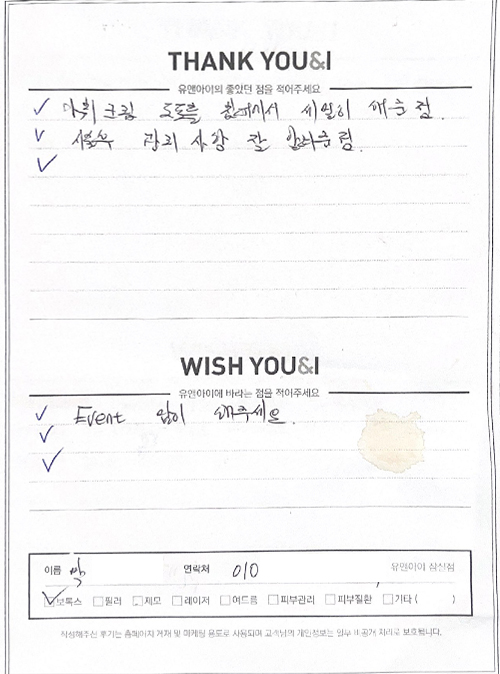 THANK YOU&I
유앤아이의 좋았던 점을 적어주세요
마취크림 도포를 세밀히 해준 점.
시술후 관리 사항 잘 알려준 점.
WISH YOU&I
유앤아이에 바라는 점을 적어주세요
Event 많이 해주세요.
이름 박 연락처 010 유앤아이 잠실점
보톡스 필러 제모 레이저 여드름 피부관리 피부질환 기타 ( )
작성해주신 후기는 홈페이지 게재 및 마케팅 용도로 사용되며 고객님의 개인정보는 일부 비공개 처리로 보호됩니다.